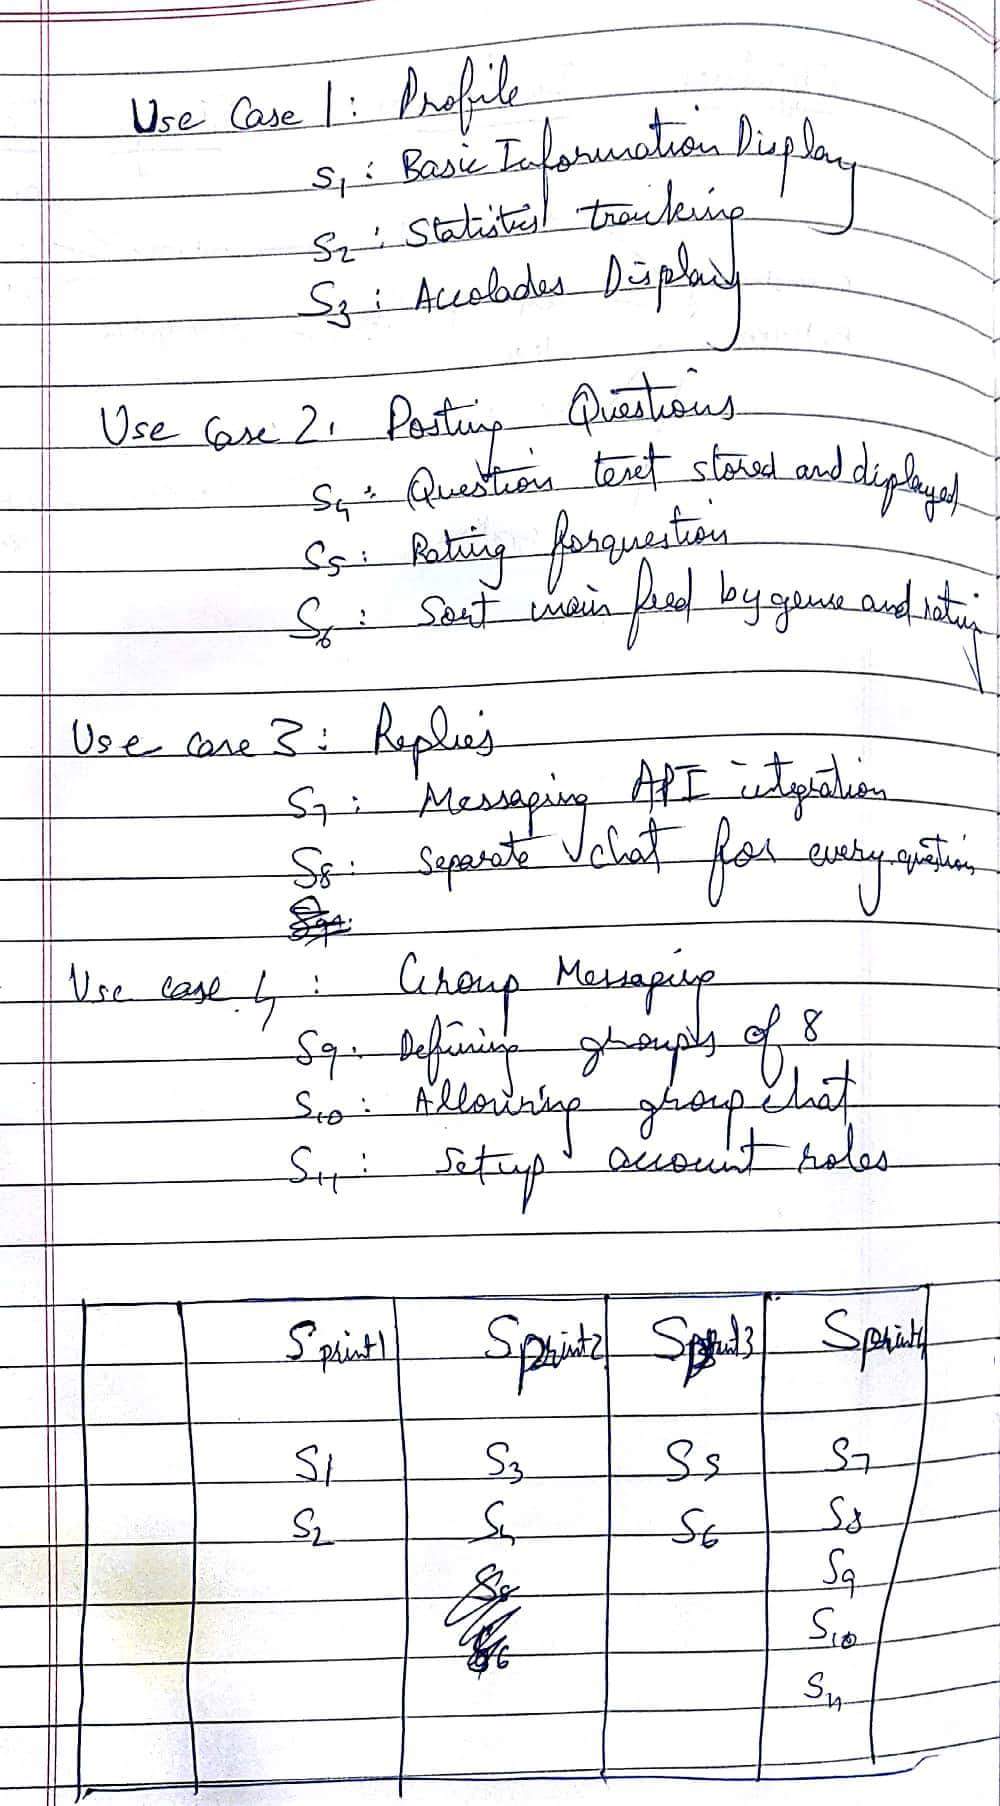 Use Case 1: Profile
S1: Basic Information Display
S2: Statistics tracking
S3: Accolades Display
Use Case 2: Posting Questions
S4: Question text stored and displayed
S5: Rating for question
S6: Sort main feed by genre and rating
Use case 3: Replies
S7: Messaging API integration
S8: Separate chat for every question
Use case 4: Group Messaging
S9: Defining groups of 8
S10: Allowing group chat
S11: Setup account roles
Sprint1 Sprint2 Sprint3 Sprint4
S1 S3 S5 S7
S2 S4 S6 S8
S9
S10
S11